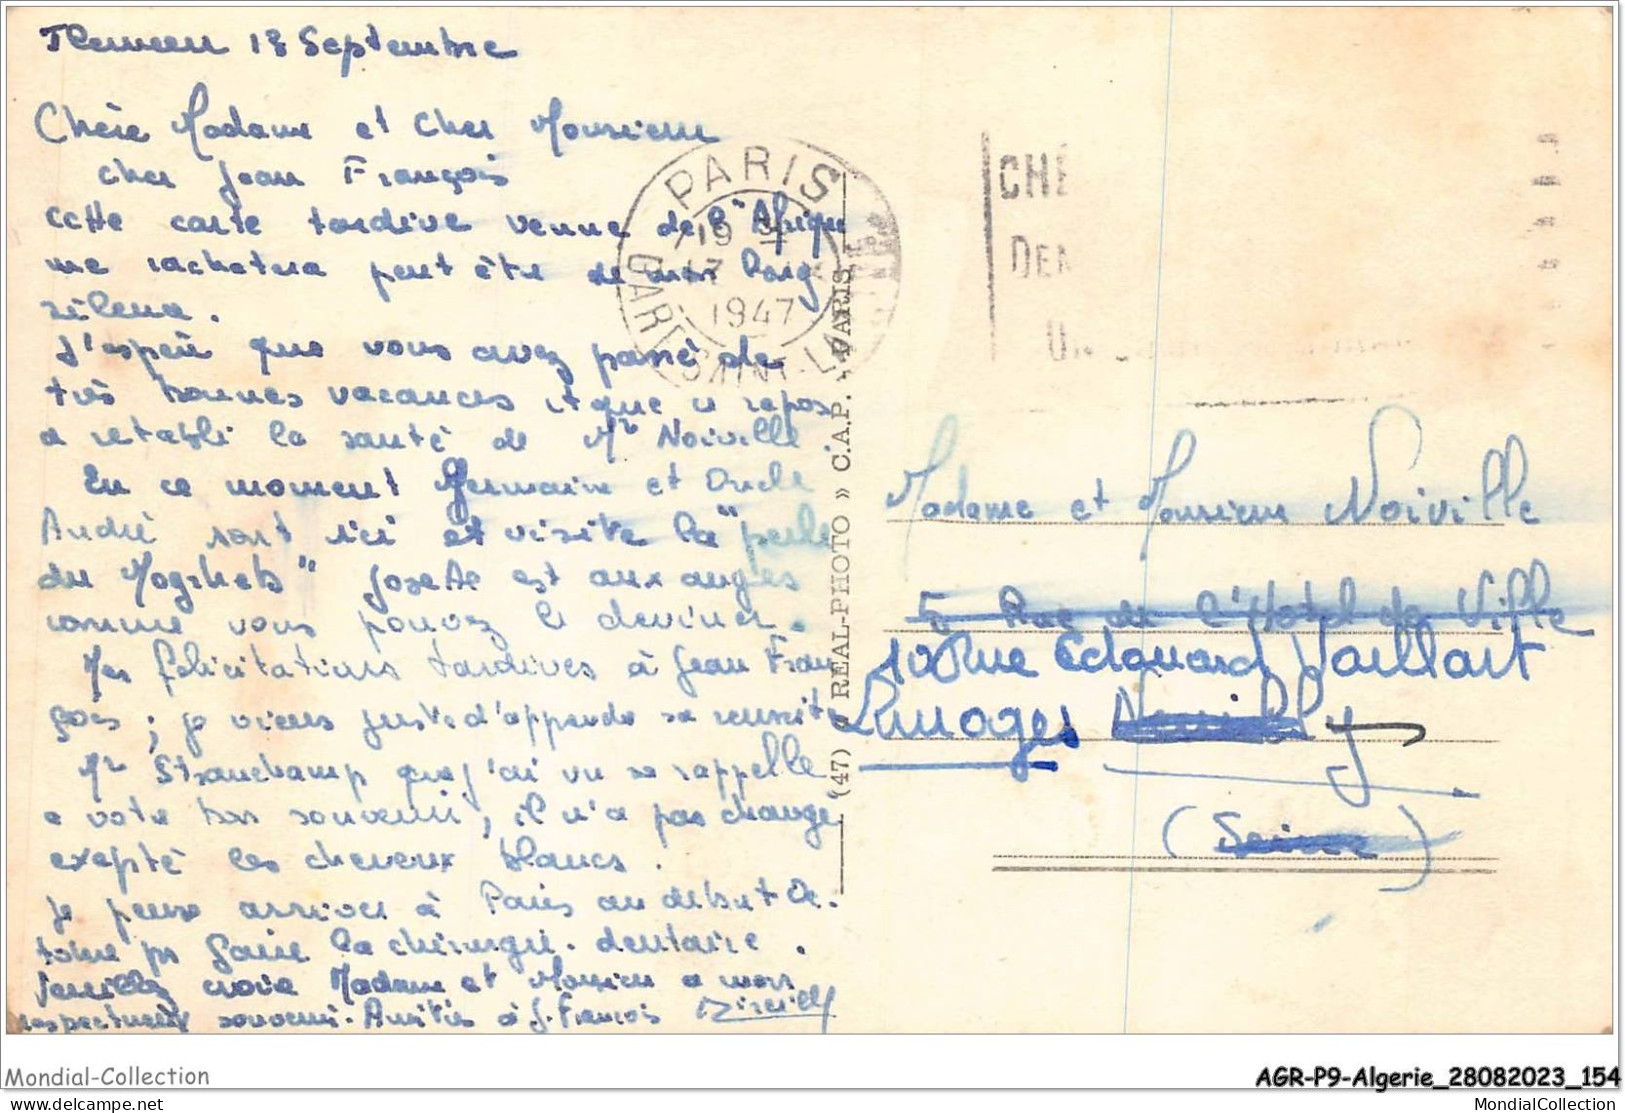 Tlemcen 13 Septembre
Chère Madame et Cher Monsieur
cher Jean François
cette carte tardive venue de l'Afrique
me rachetera peut être de mon long
silence.
J'espère que vous avez passé de
très bonnes vacances et que ce repos
a retabli la santé de Mr Noiville
En ce moment Germaine et Oncle
André sont ici et visite la "perle
du Moghreb" Josette est aux anges
comme vous pouvez le deviner.
Mes félicitations tardives à Jean Fran
çois ; je viens juste d'apprendre sa reussite
Mr Strauchamp que j'ai vu se rappelle
a votre bon souvenir, il n'a pas change
exepté les cheveux blancs.
Je pense arriver à Paris au debut Oc.
tobre pr faire la chirurgie. dentaire.
Veuillez croire Madame et Monsieur a mon
respectueux souvenir. Amitiés à J. François Mireille
PARIS
19
17 IX
1947
GARE SAINT-LAZARE
CHÈ
DEM
UN
(47) « REAL-PHOTO » C.A.P. - PARIS
Madame et Monsieur Noiville
5 Rue de l'Hotel de Ville
10 Rue Edouard Vaillant
Limoges Neuilly
(Seine)
Mondial-Collection
AGR-P9-Algerie_28082023_154
www.delcampe.net
MondialCollection